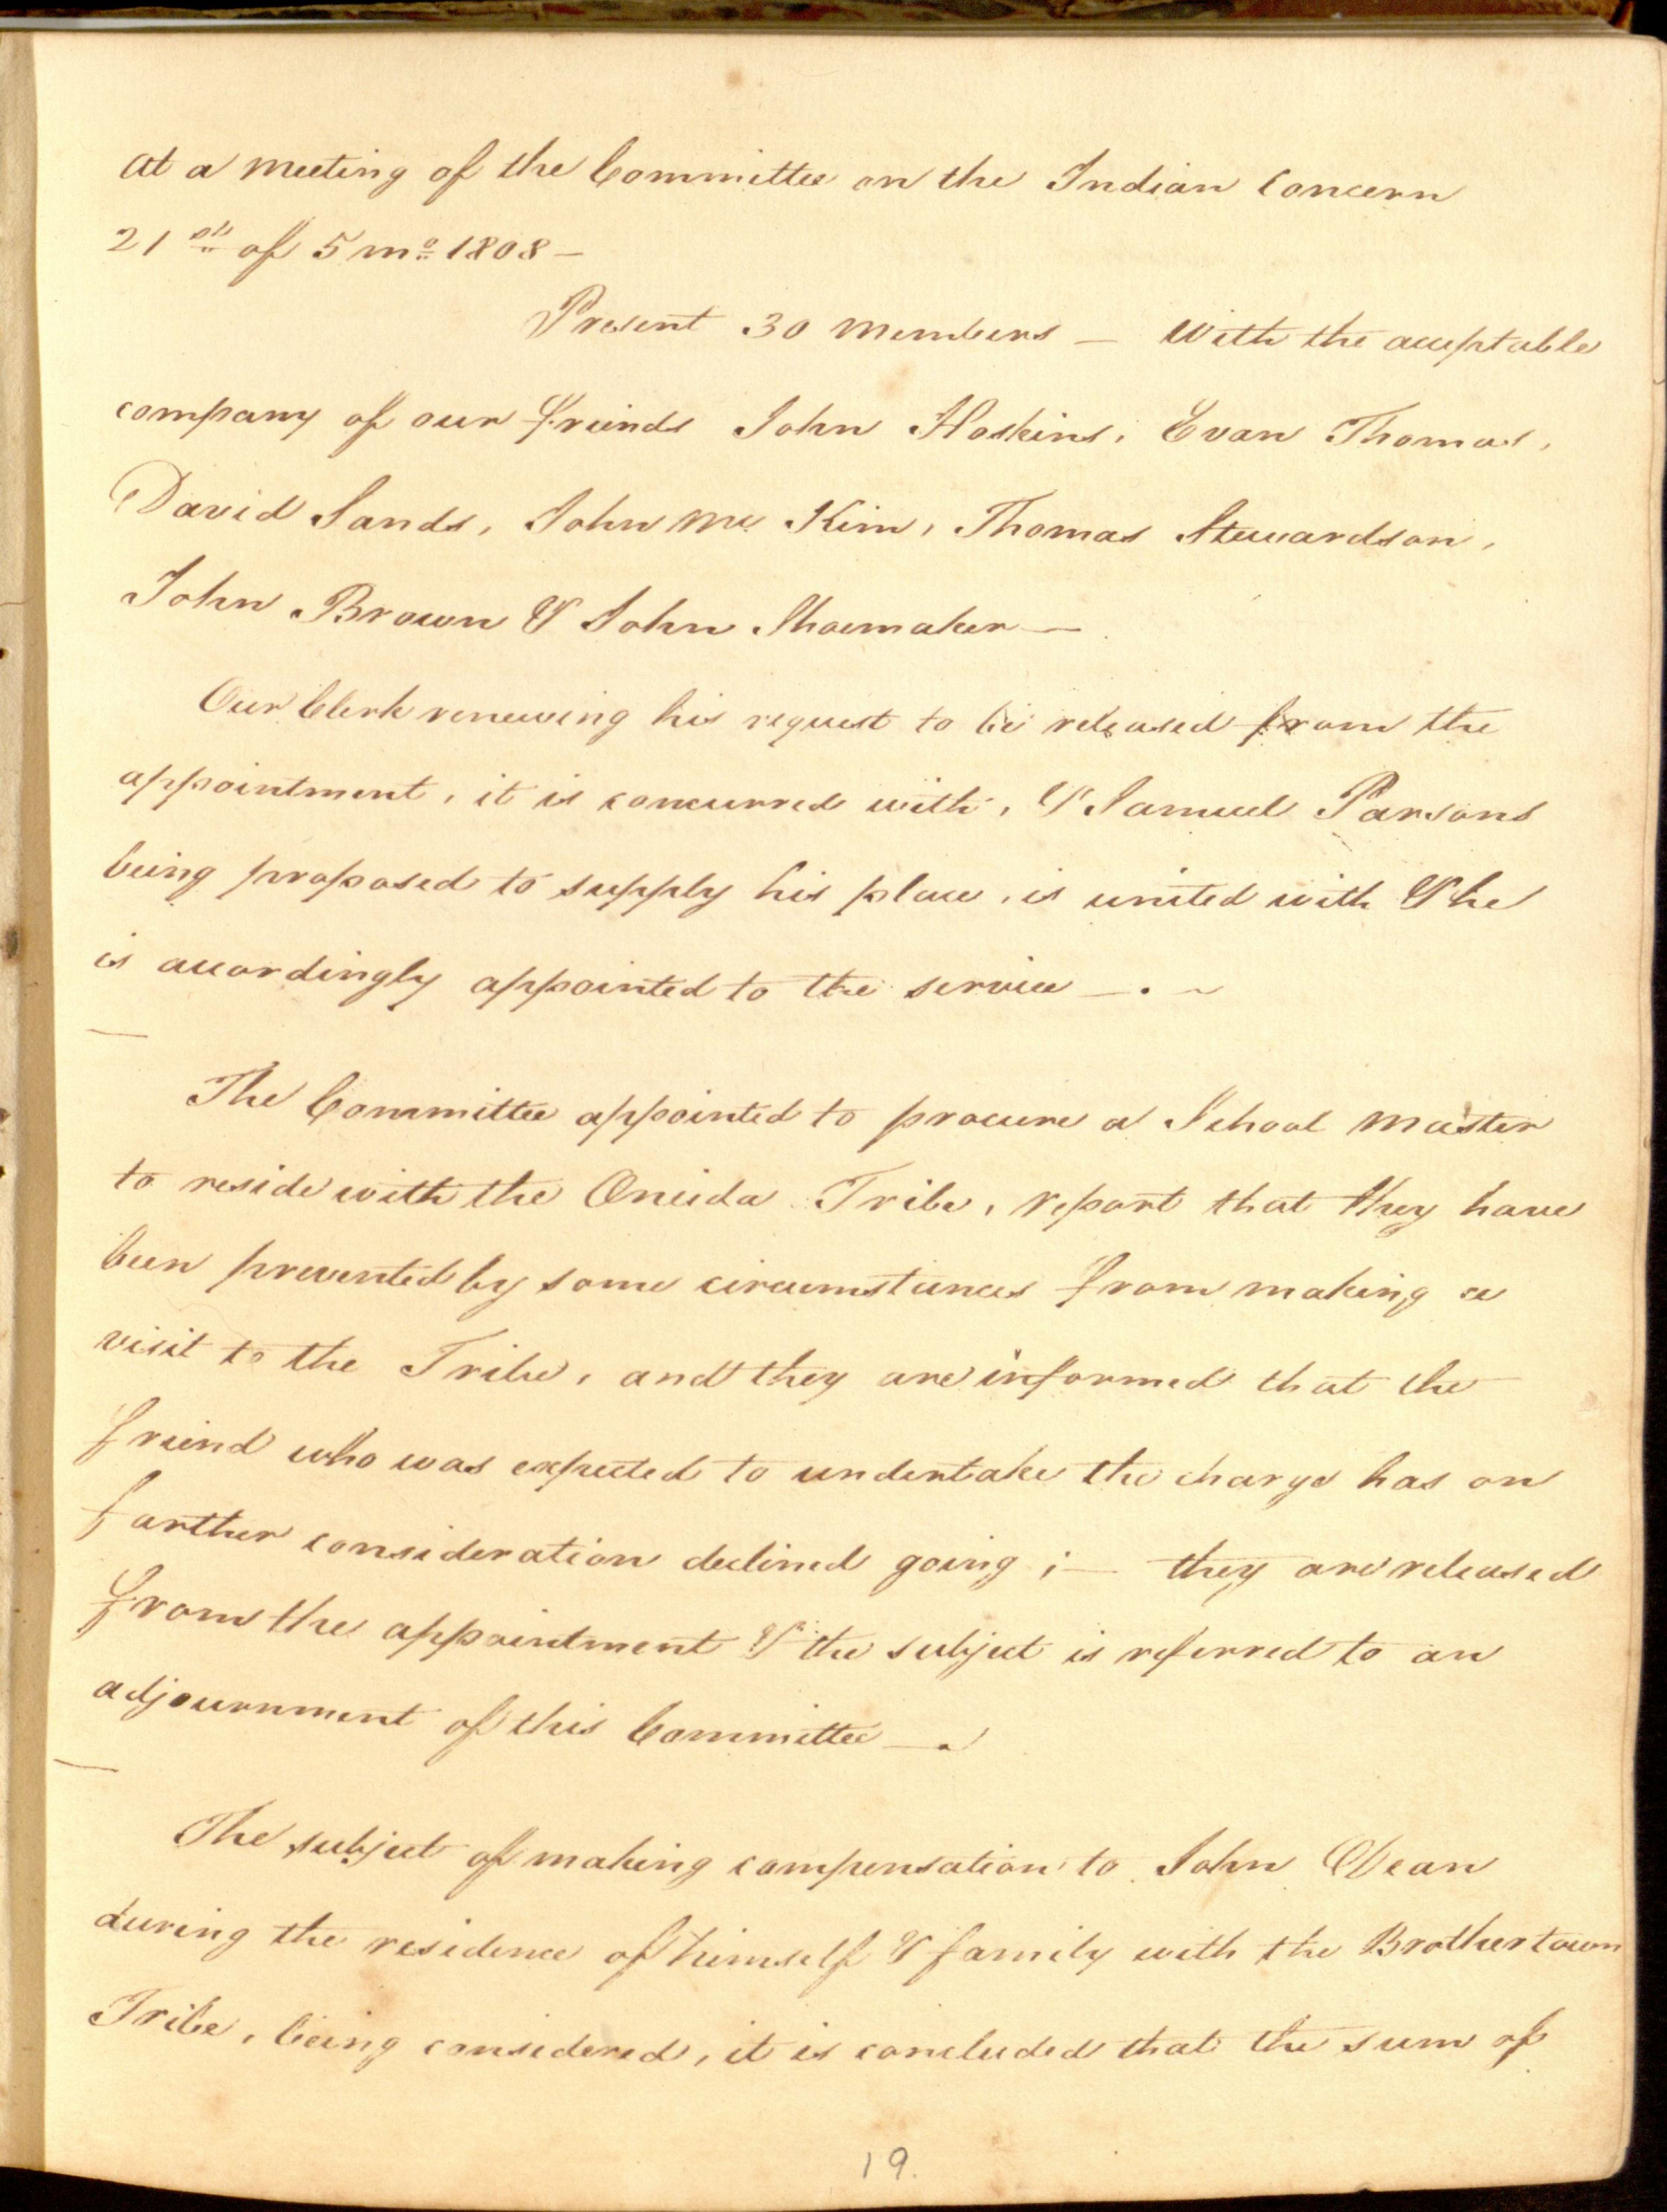 At a meeting of the Committee on the Indian Concern
21st of 5 mo. 1808 —
Present 30 members — With the acceptable
company of our friends John Hoskins, Evan Thomas,
David Sands, John Mc Kim, Thomas Stewardson,
John Brown & John Shoemaker —
Our Clerk renewing his request to be released from the
appointment, it is concurred with, & Samuel Parsons
being proposed to supply his place, is united with & he
is accordingly appointed to the service — . ~
The Committee appointed to procure a School master
to reside with the Oneida Tribe, report that they have
been prevented by some circumstances from making a
visit to the Tribe, and they are informed that the
friend who was expected to undertake the charge has on
farther consideration declined going ; — they are released
from the appointment & the subject is referred to an
adjournment of this Committee — .
The subject of making compensation to John Dean
during the residence of himself & family with the Brothertown
Tribe, being considered, it is concluded that the sum of
19.